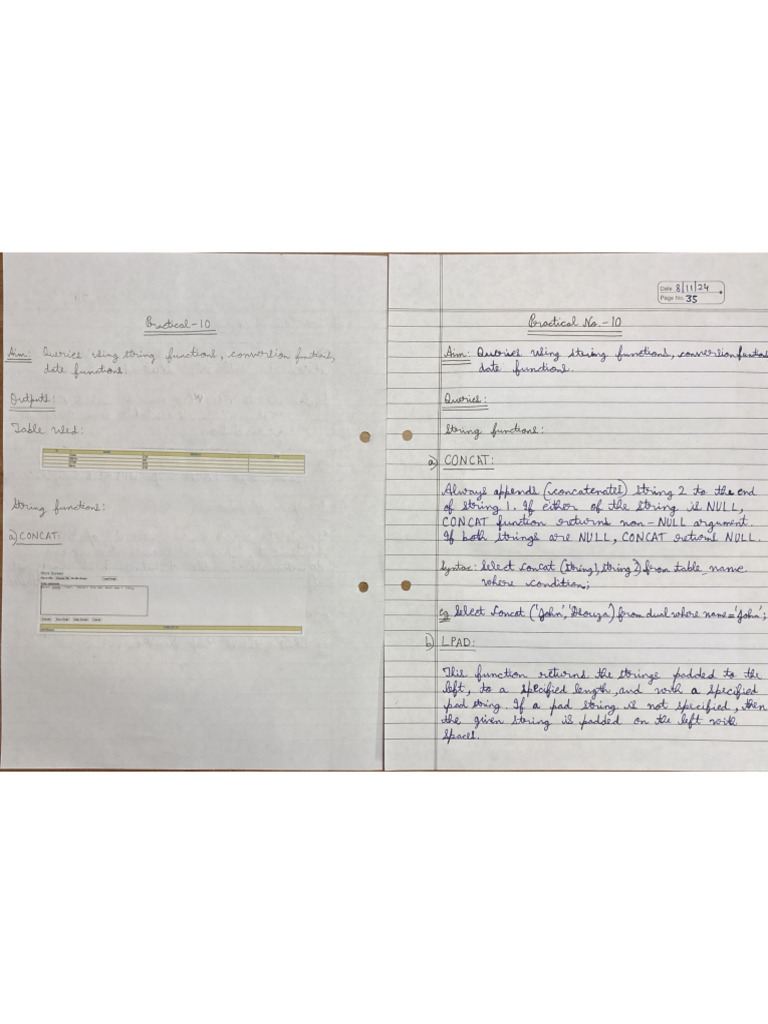 Practical-10
Aim: Queries using string functions, conversion functions,
date functions.
Outputs:
Table Used:
String functions:
a) CONCAT:
Date 8/11/24
Page No. 35
Practical No.-10
Aim: Queries using string functions, conversion functions
date functions.
Queries:
String functions:
a) CONCAT:
Always appends (concatenates) string 2 to the end
of string 1. If either of the string is NULL,
CONCAT function returns non-NULL argument.
If both strings are NULL, CONCAT returns NULL.
Syntax: Select Concat (String1, String2) from table_name
where condition;
eg Select Concat ('John','Dsouza') from dual where name='John';
b) LPAD:
This function returns the strings padded to the
left, to a specified length, and with a specified
pad string. If a pad string is not specified, then
the given string is padded on the left with
spaces.